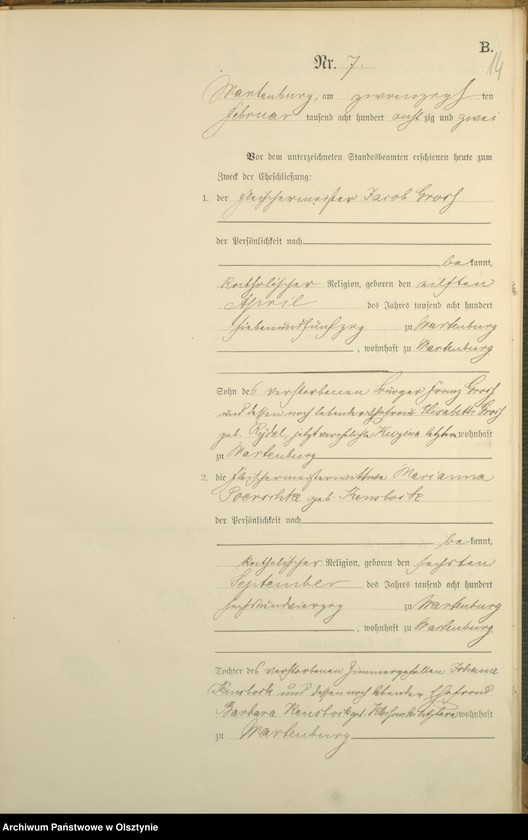 B.
14
Nr. 7.
Wartenburg, am zwanzigsten
Februar tausend acht hundert acht zig und zwei
Vor dem unterzeichneten Standesbeamten erschienen heute zum
Zweck der Eheschließung:
1. der Fleischermeister Jacob Grosch
der Persönlichkeit nach
be kannt,
katholischer Religion, geboren den eilften
April des Jahres tausend acht hundert
siebenundfünfzig zu Wartenburg
, wohnhaft zu Wartenburg
Sohn des verstorbenen Bürger Franz Grosch
und dessen noch lebender Ehefrau Elisabeth Grosch
geb. jetzt verehelichte letztere wohnhaft
zu Wartenburg
2. die Fleischermeisterwittwe Marianna
Poerschke geb. Kensbock
der Persönlichkeit nach
be kannt,
katholischer Religion, geboren den sechsten
September des Jahres tausend acht hundert
sechsundvierzig zu Wartenburg
, wohnhaft zu Wartenburg
Tochter des verstorbenen Zimmergesellen Johann
Kensbock und dessen noch lebender Ehefrau
Barbara Kensbock geb. letztere wohnhaft
zu Wartenburg
Archiwum Państwowe w Olsztynie